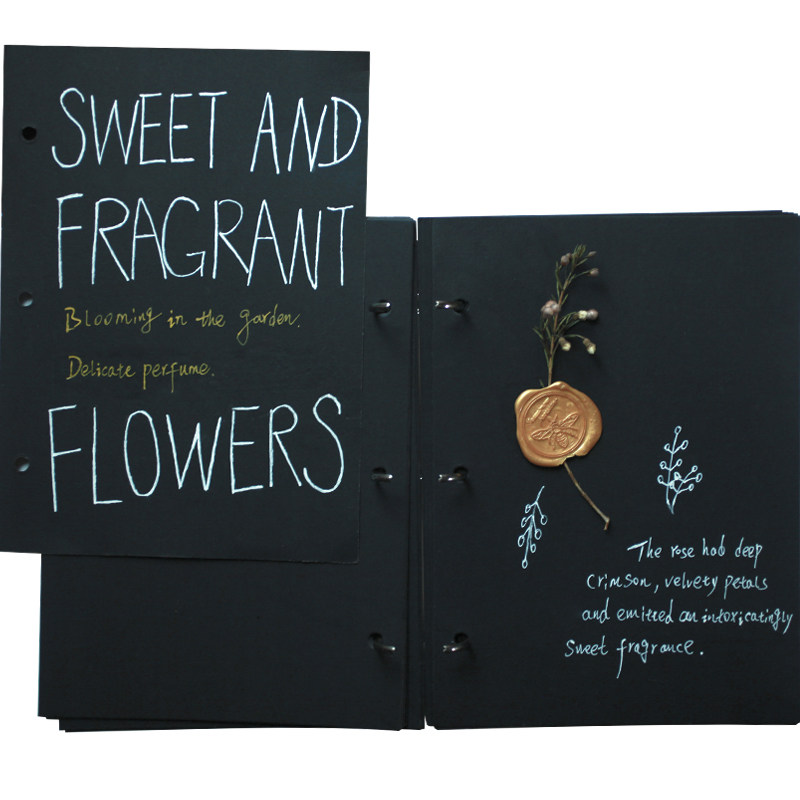 SWEET AND
FRAGRANT
Blooming in the garden.
Delicate perfume.
FLOWERS
The rose had deep
crimson, velvety petals
and emitted an intoxicatingly
sweet fragrance.